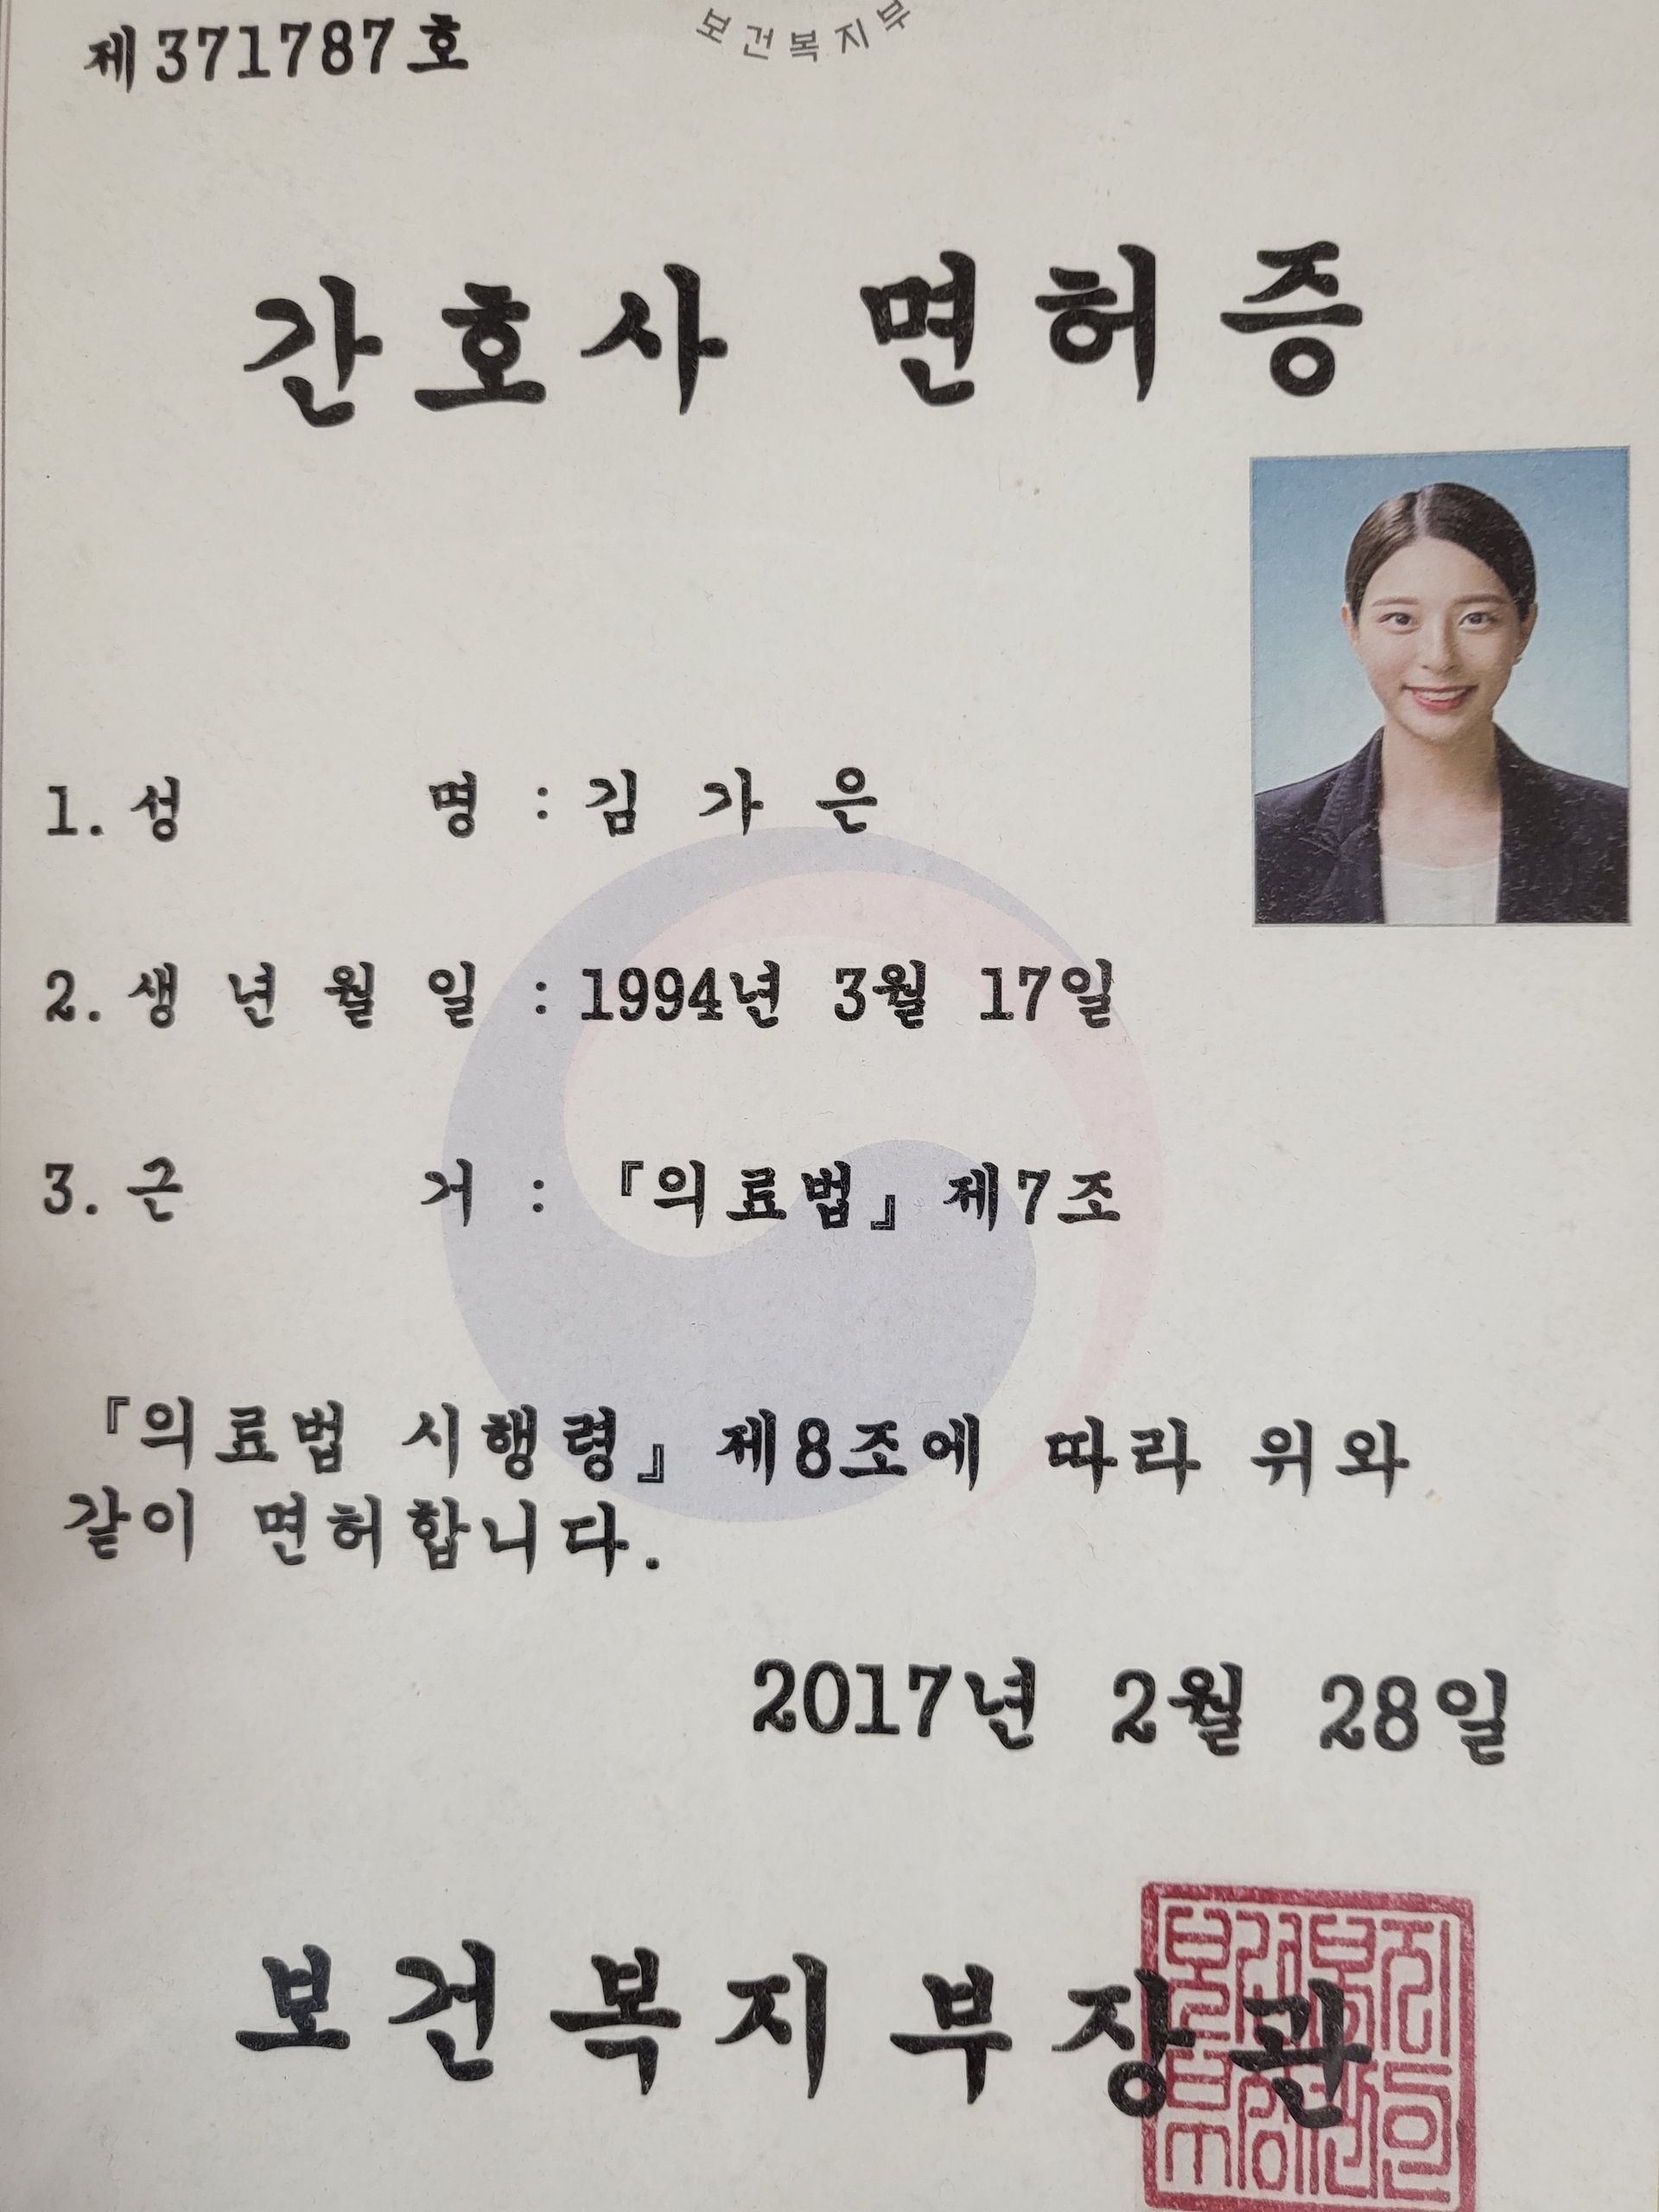 제371787호
보건복지부
간호사 면허증
1. 성 명 : 김 가 은
2. 생 년 월 일 : 1994년 3월 17일
3. 근 거 : 『의료법』 제7조
『의료법 시행령』 제8조에 따라 위와
같이 면허합니다.
2017년 2월 28일
보건복지부장관